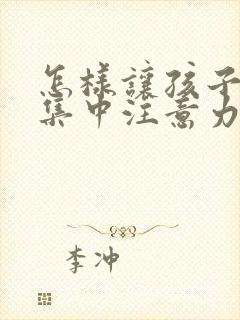 怎樣讓孩子
集中注意力
李冲